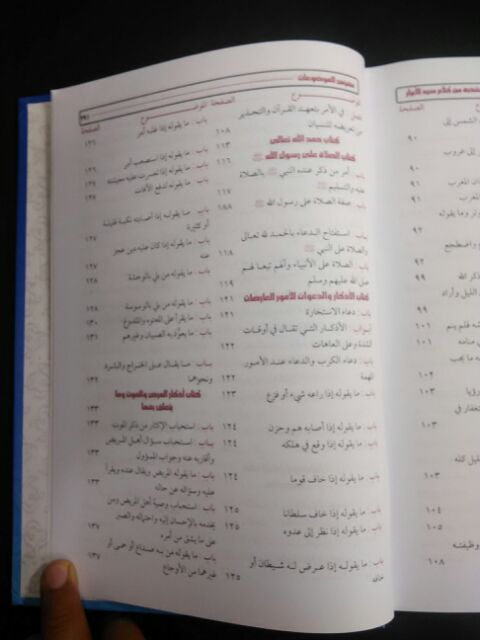 فهرس الموضوعات
٣٩١
الموضوع الصفحة
فصل : في الأمر بتعهد القرآن والتحذير
من تعريضه للنسيان ١٠٨
كتاب حمد الله تعالى ١١٣
كتاب الصلاة على رسول الله ﷺ ١١٦
باب : أمر من ذكر عنده النبي ﷺ بالصلاة
عليه والتسليم ﷺ ١١٧
باب : صفة الصلاة على رسول الله ﷺ ١٨٨
باب : استفتاح الدعاء بالحمد لله تعالى
والصلاة على النبي ﷺ ١١٨
باب : الصلاة على الأنبياء وآلهم تبعا لهم
صلى الله عليهم وسلم ١١٩
كتاب الأذكار والدعوات للأمور العارضات ١٢١
باب : دعاء الاستخارة ١٢١
أبواب : الأذكار التي تقال في أوقات
الشدة وعلى العاهات ١٢٢
باب : دعاء الكرب والدعاء عند الأمور
المهمة ١٢٢
باب : ما يقوله إذا راعه شيء أو فزع ١٢٣
باب : ما يقوله إذا أصابه هم وحزن ١٢٤
باب : ما يقوله إذا وقع في هلكة ١٢٤
باب : ما يقوله إذا خاف قوما ١٢٤
باب : ما يقوله إذا خاف سلطانا ١٢٥
باب : ما يقوله إذا نظر إلى عدوه ١٢٥
باب : ما يقوله إذا عرض له شيطان أو
خافه ١٢٥
الموضوع الصفحة
باب : ما يقوله إذا غلبه أمر ١٢٦
باب : ما يقوله إذا استصعب أمر ١٢٦
باب : ما يقوله إذا تعسرت عليه معيشته ١٢٧
باب : ما يقوله لدفع الآفات ١٢٧
باب : ما يقوله إذا أصابته نكبة قليلة
أو كثيرة ١٢٧
باب : ما يقوله إذا كان عليه دين عجز
عنه ١٢٧
باب : ما يقوله من بلي بالوحشة ١٢٨
باب : ما يقوله من بلي بالوسوسة ١٢٨
باب : ما يقرأ على المعتوه والملدوغ ١٣٠
باب : ما يعوذ به الصبيان وغيرهم ١٣١
باب : ما يقال على الخراج والبثرة
ونحوهما ١٣٢
كتاب أذكار المرض والموت وما
يتعلق بهما ١٣٣
باب : استحباب الإكثار من ذكر الموت ١٣٣
باب : استحباب سؤال أهل المريض
وأقاربه عنه وجواب المسؤول ١٣٣
باب : ما يقوله المريض ويقال عنده ويقرأ
عليه وسؤاله عن حاله ١٣٣
باب : استحباب وصية أهل المريض ومن
يخدمه بالإحسان إليه واحتماله والصبر
على ما يشق من أمره ١٣٧
باب : ما يقوله من به صداع أو حمى أو
غيرهما من الأوجاع ١٣٧
من كلام سيد الأبرار
الصفحة
الشمس إلى
٩٠
إلى غروب
٩٠
المغرب ٩١
المغرب ٩١
وتر وما يقوله
٩٢
واضطجع ٩٢
ذكر الله ٩٩
الليل وأراد
٩٩
فلم ينم ١٠١
منامه ١٠١
ما يحب
١٠٢
رؤيا ١٠٣
استغفار في
١٠٣
ليل كله
١٠٣
١٠٤
١٠٥
ووظيفته
١٠٨